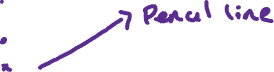 Pencil line